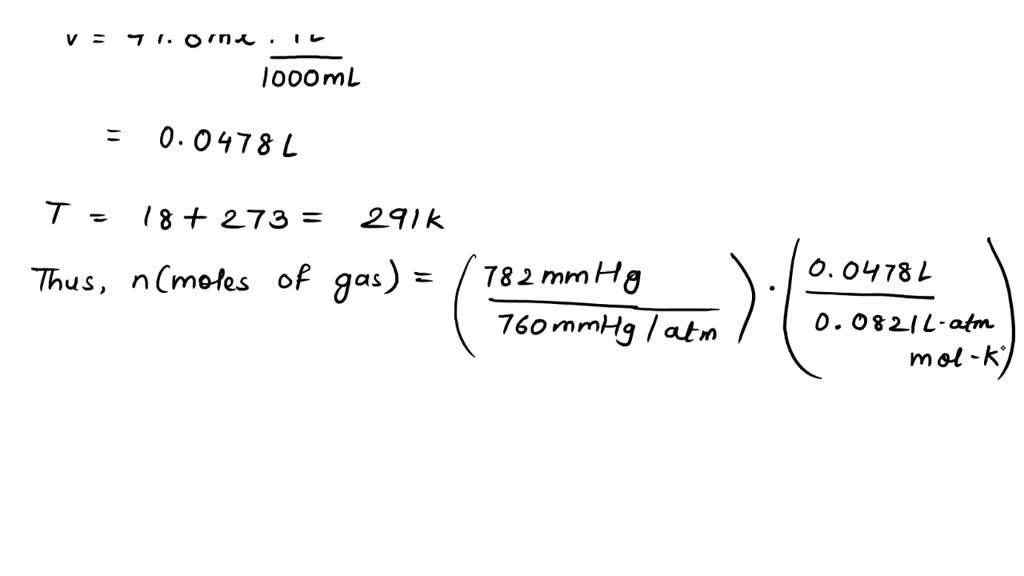 1000mL
= 0.0478L
T = 18 + 273 = 291k
Thus, n(moles of gas) = (782mmHg / 760mmHg/atm) · (0.0478L / 0.0821L-atm mol-K°)